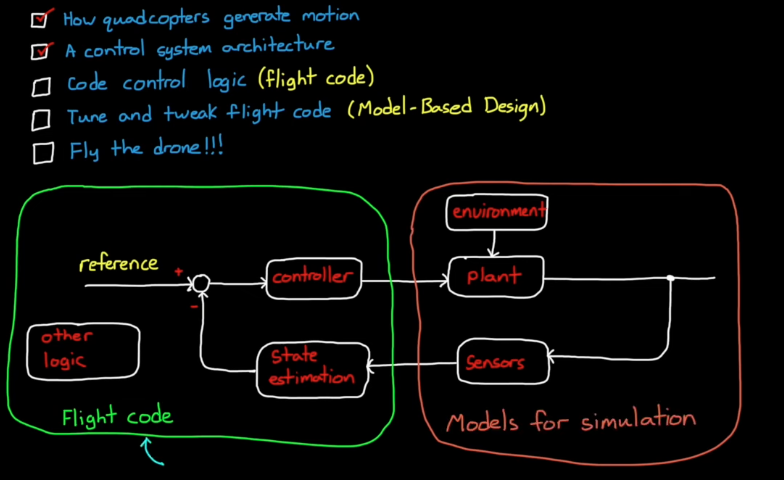 How quadcopters generate motion
A control system architecture
Code control logic (flight code)
Tune and tweak flight code (Model-Based Design)
Fly the drone!!!
environment
reference
+
controller
plant
-
other
logic
state
estimation
sensors
Flight code
Models for simulation